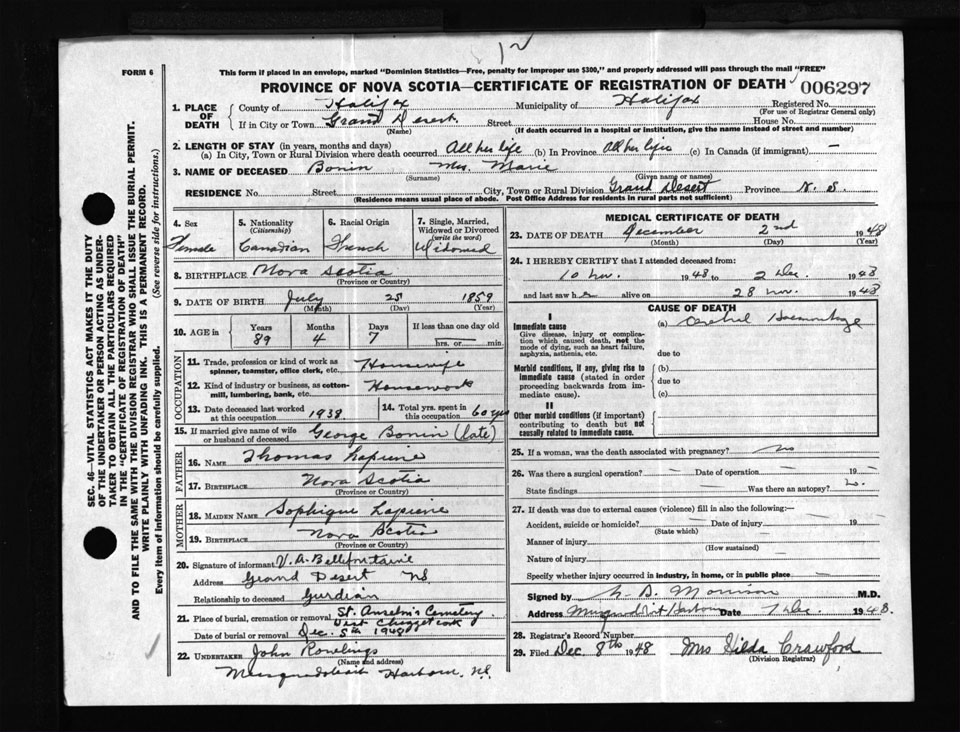 FORM 6
This form if placed in an envelope, marked "Dominion Statistics—Free, penalty for improper use $300," and properly addressed will pass through the mail "FREE"
PROVINCE OF NOVA SCOTIA—CERTIFICATE OF REGISTRATION OF DEATH
006297
SEC. 46—VITAL STATISTICS ACT MAKES IT THE DUTY
OF THE UNDERTAKER OR PERSON ACTING AS UNDER-
TAKER TO OBTAIN ALL THE PARTICULARS REQUIRED
IN THE "CERTIFICATE OF REGISTRATION OF DEATH"
AND TO FILE THE SAME WITH THE DIVISION REGISTRAR WHO SHALL ISSUE THE BURIAL PERMIT.
WRITE PLAINLY WITH UNFADING INK. THIS IS A PERMANENT RECORD.
Every item of information should be carefully supplied. (See reverse side for instructions.)
1. PLACE OF DEATH
County of Halifax Municipality of Halifax Registered No.
(For use of Registrar General only)
If in City or Town Grand Desert Street House No.
(Name) (If death occurred in a hospital or institution, give the name instead of street and number)
2. LENGTH OF STAY (in years, months and days)
(a) In City, Town or Rural Division where death occurred All her life (b) In Province All her life (c) In Canada (if immigrant) —
3. NAME OF DECEASED Bonin Mrs. Marie
(Surname) (Given name or names)
RESIDENCE No. Street City, Town or Rural Division Grand Desert Province N. S.
(Residence means usual place of abode. Post Office Address for residents in rural parts not sufficient)
4. Sex Female
5. Nationality (Citizenship) Canadian
6. Racial Origin French
7. Single, Married, Widowed or Divorced (write the word) Widowed
8. BIRTHPLACE Nova Scotia
(Province or Country)
9. DATE OF BIRTH July 25 1859
(Month) (Day) (Year)
10. AGE in Years 89 Months 4 Days 7 If less than one day old hrs. or min.
OCCUPATION
11. Trade, profession or kind of work as spinner, teamster, office clerk, etc. Housewife
12. Kind of industry or business, as cotton-mill, lumbering, bank, etc. Housework
13. Date deceased last worked at this occupation 1938
14. Total yrs. spent in this occupation 60 yrs
15. If married give name of wife or husband of deceased George Bonin (late)
FATHER
16. Name Thomas Lapierre
17. Birthplace Nova Scotia
(Province or Country)
MOTHER
18. Maiden Name Sophique Lapierre
19. Birthplace Nova Scotia
(Province or Country)
20. Signature of informant V. A. Bellefontaine
Address Grand Desert NS
Relationship to deceased Gurdian
21. Place of burial, cremation or removal St. Anselm's Cemetery
West Chezzetcook
Date of burial or removal Dec. 5th 1948
22. UNDERTAKER John Rowlings
(Name and address)
Musquodoboit Harbour, NS.
MEDICAL CERTIFICATE OF DEATH
23. DATE OF DEATH December 2nd 1948
(Month) (Day) (Year)
24. I HEREBY CERTIFY that I attended deceased from:
10 Nov. 1948 to 2 Dec. 1948
and last saw her alive on 28 Nov. 1948
CAUSE OF DEATH
I
Immediate cause
Give disease, injury or complica-
tion which caused death, not the
mode of dying, such as heart failure,
asphyxia, asthenia, etc.
(a) Cerebral Haemorrhage
due to
Morbid conditions, if any, giving rise to
immediate cause (stated in order
proceeding backwards from im-
mediate cause).
(b)
due to
(c)
II
Other morbid conditions (if important)
contributing to death but not
causally related to immediate cause.
25. If a woman, was the death associated with pregnancy? No
26. Was there a surgical operation? — Date of operation — 19 —
State findings Was there an autopsy?
27. If death was due to external causes (violence) fill in also the following:—
Accident, suicide or homicide? — Date of injury 19
(State which)
Manner of injury
(How sustained)
Nature of injury
Specify whether injury occurred in industry, in home, or in public place —
Signed by Morrison M.D.
Address Musquodoboit Harbour Date 7 Dec. 1948.
28. Registrar's Record Number
29. Filed Dec 8th 1948 Mrs Hilda Crawford
(Division Registrar)